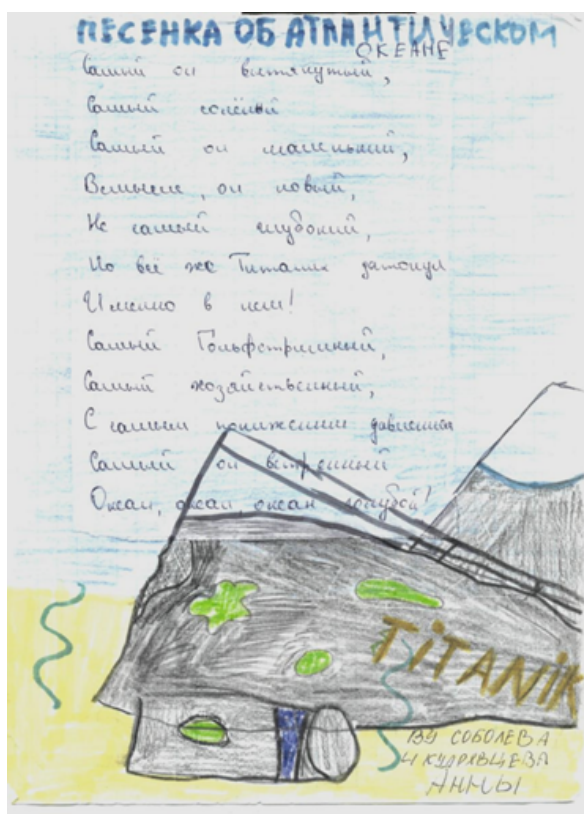 ПЕСЕНКА ОБ АТЛАНТИЧЕСКОМ
ОКЕАНЕ
Самый он вытянутый,
Самый солёный
Самый он маленький,
он новый,
Не самый глубокий,
Но всё же Титаник затонул
Именно в нём!
Самый Гольфстримный,
Самый хозяйственный,
С самым пониженным давлением
Самый он
Океан, океан, океан голубой!
TiTANiK
BY СОБОЛЕВА
И КУДРЯВЦЕВА
АННЫ